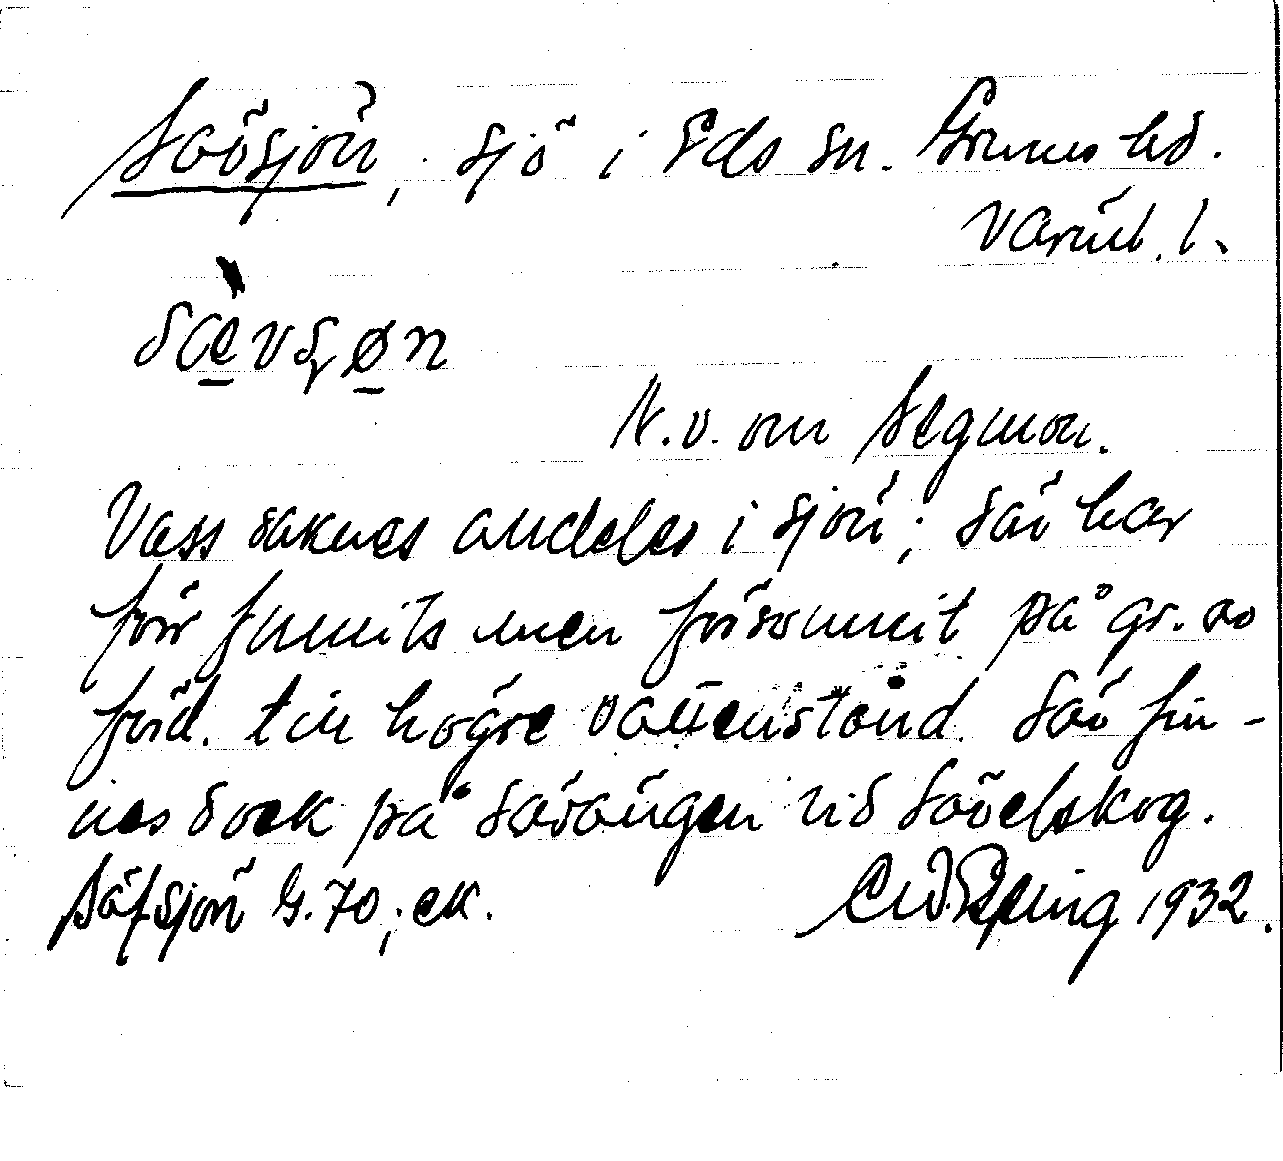 Sävsjön, sjö i Eds sn. Grums hd.
Värml. l.
N.v. om Segmon.
Vass saknas alldeles i sjön; säv har
förr funnits men försvunnit på gr. av
förd. till högre vattenstånd. Säv fin-
nes dock på Sävängen vid Sävelskog.
Säfsjön G. 70; ek.
1932.